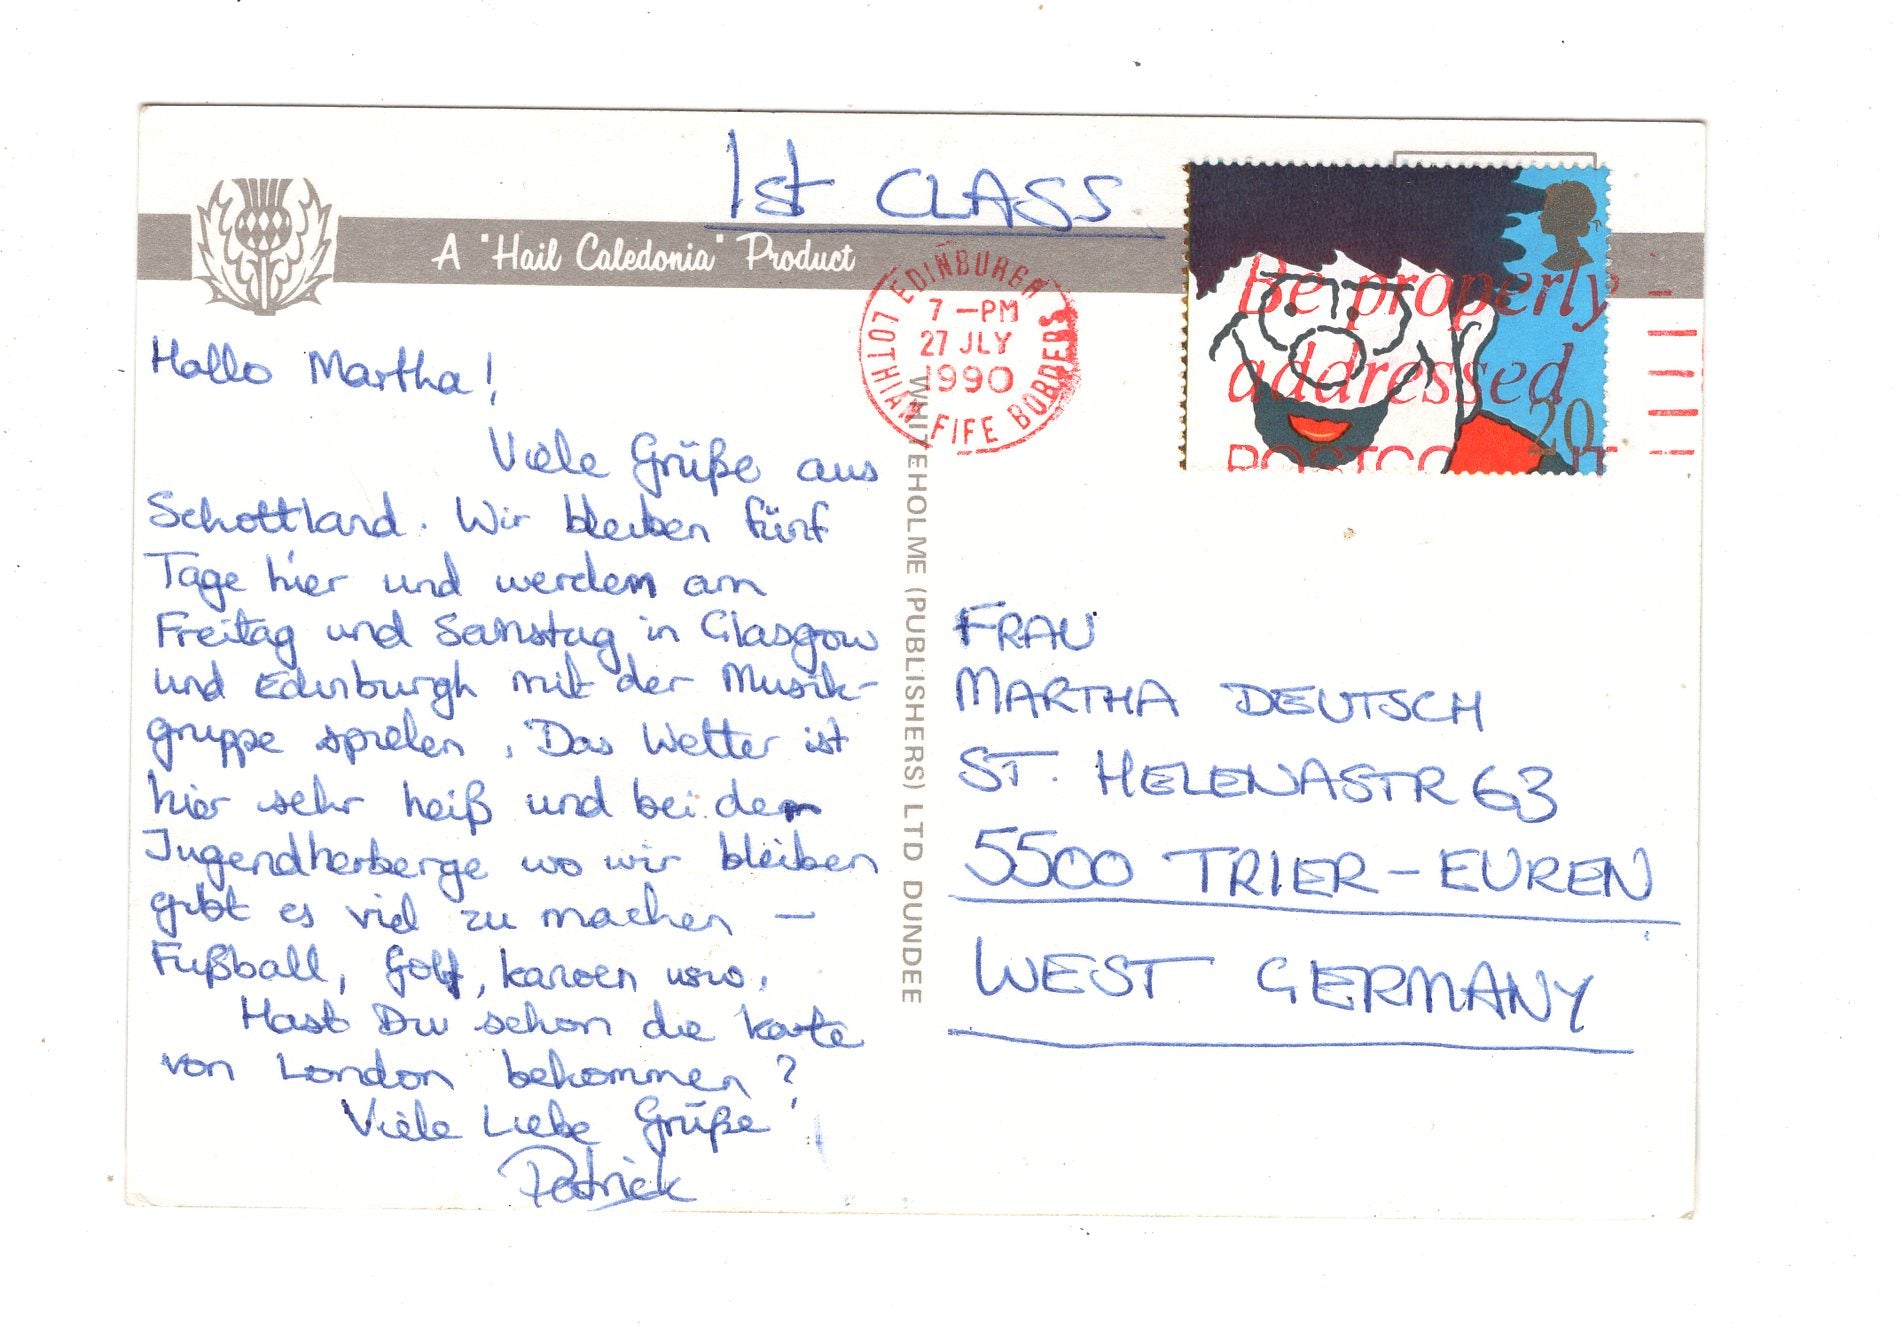 1st CLASS
A "Hail Caledonia" Product
EDINBURGH
7 — PM
27 JLY
1990
LOTHIAN FIFE BORDERS
Be properly
addressed
POSTCO
20
Hallo Martha!
Viele Grüße aus
Schottland. Wir bleiben fünf
Tage hier und werden am
Freitag und Samstag in Glasgow
und Edinburgh mit der Musik-
gruppe spielen. Das Wetter ist
hier sehr heiß und bei der
Jugendherberge wo wir bleiben
gibt es viel zu machen —
Fußball, Golf, kanoen usw.
Hast Du schon die Karte
von London bekommen?
Viele Liebe Grüße!
Patrick
WHITEHOLME (PUBLISHERS) LTD DUNDEE
FRAU
MARTHA DEUTSCH
ST. HELENASTR 63
5500 TRIER – EUREN
WEST GERMANY